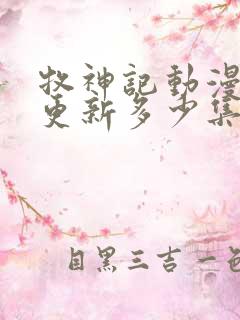 牧神記動漫
更新多少集
目黑三吉 一色